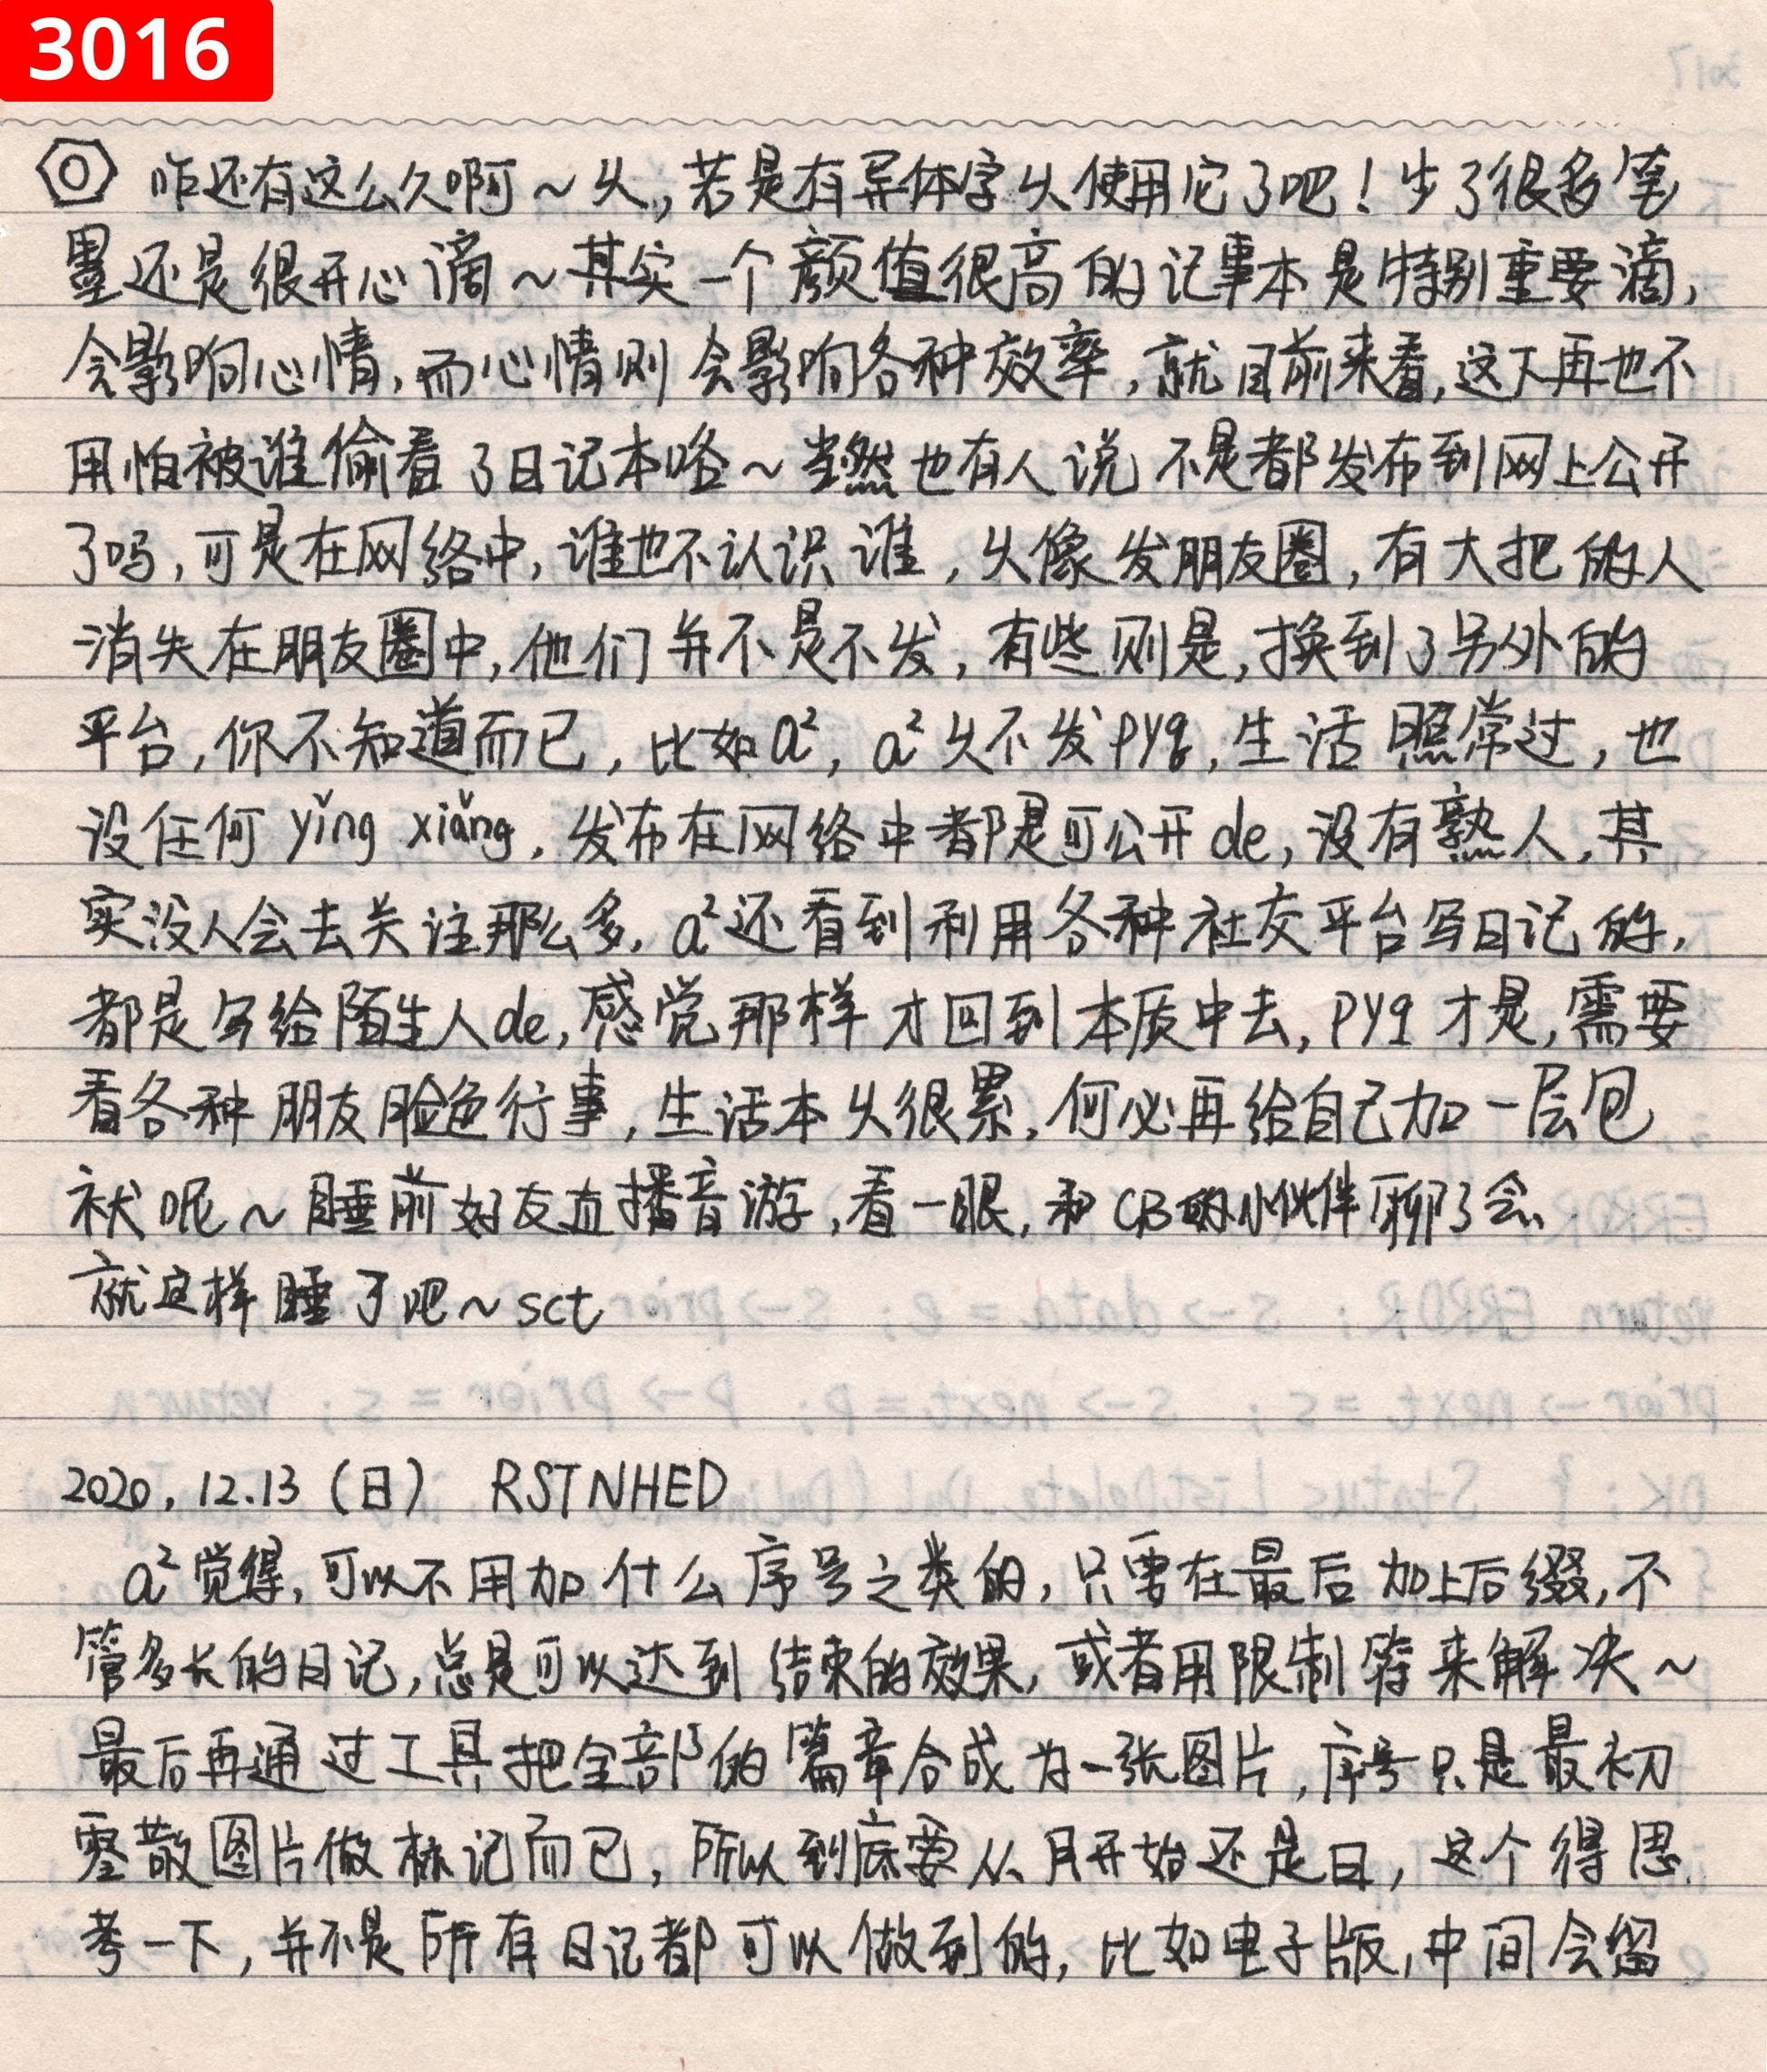 3016
咋还有这么久啊~头,若是有异体字头使用它了吧!步了很多笔
墨还是很开心滴~其实一个颜值很高的记事本是特别重要滴,
会影响心情,而心情则会影响各种效率,就目前来看,这下再也不
用怕被谁偷看了日记本咯~当然也有人说不是都发布到网上公开
了吗,可是在网络中,谁也不认识谁,头像发朋友圈,有大把的人
消失在朋友圈中,他们并不是不发,有些则是,换到了另外的
平台,你不知道而已,比如a²,a²头不发pyq,生活照常过,也
没任何yǐng xiǎng,发布在网络中都是可公开de,没有熟人,其
实没人会去关注那么多,a²还看到利用各种社交平台写日记的,
都是写给陌生人de,感觉那样才回到本质中去,pyq才是,需要
看各种朋友脸色行事,生活本头很累,何必再给自己加一层包
袱呢~睡前好友直播音游,看一眼,和CB的小伙伴聊了会
就这样睡了吧~sct
2020.12.13(日) RSTNHED
a²觉得,可以不用加什么序号之类的,只要在最后加上后缀,不
管多长的日记,总是可以达到结束的效果,或者用限制符来解决~
最后再通过工具把全部的篇章合成为一张图片,序号只是最初
零散图片做标记而已,所以到底要从月开始还是日,这个得思
考一下,并不是所有日记都可以做到的,比如电子版,中间会留